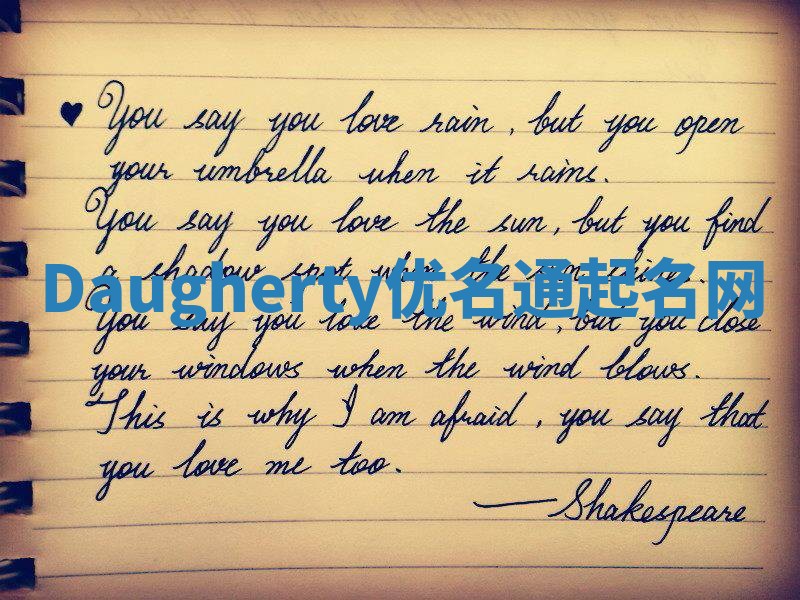 ♥ You say you love rain, but you open
your umbrella when it rains.
You say you love the sun, but you find
a shadow spot when the sun shines.
Daugherty优名通起名网
You say you love the wind, but you close
your windows when the wind blows.
This is why I am afraid, you say that
you love me too.
—Shakespeare